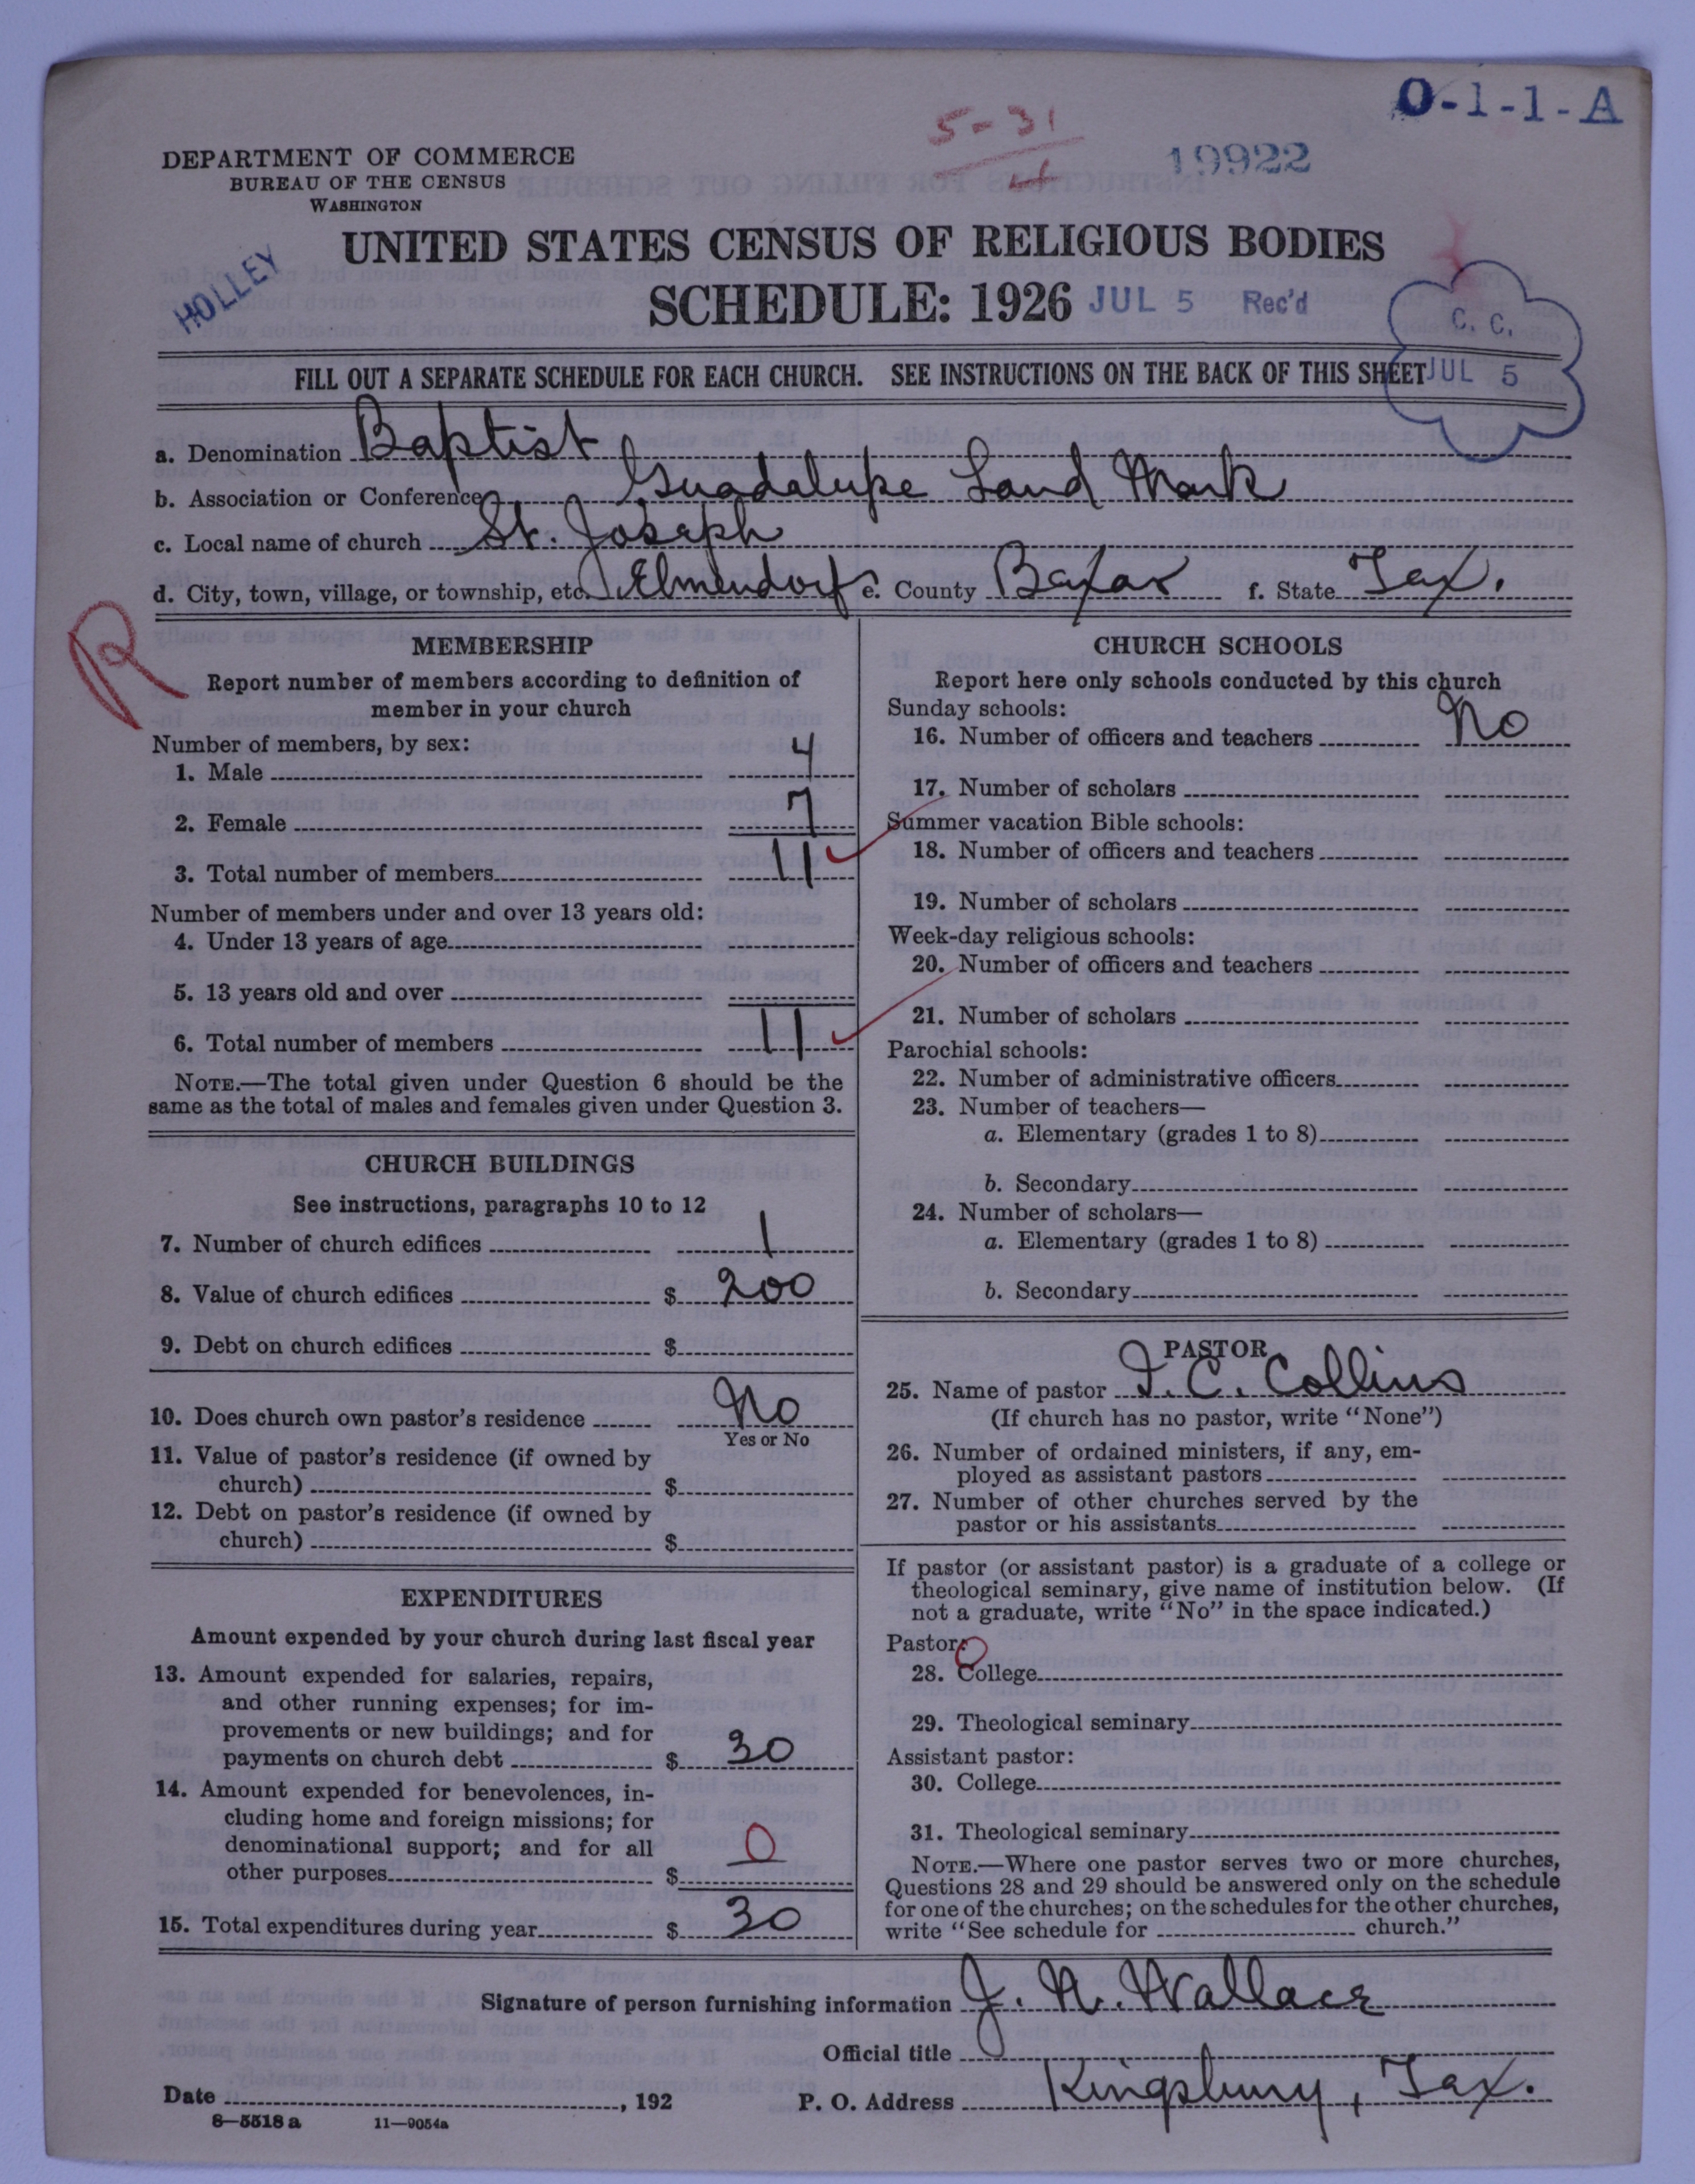 O-1-1-A
5-31
4
19922
DEPARTMENT OF COMMERCE
BUREAU OF THE CENSUS
WASHINGTON
HOLLEY
UNITED STATES CENSUS OF RELIGIOUS BODIES
SCHEDULE: 1926 JUL 5 Rec'd
C. C.
JUL 5
FILL OUT A SEPARATE SCHEDULE FOR EACH CHURCH. SEE INSTRUCTIONS ON THE BACK OF THIS SHEET
a. Denomination Baptist
b. Association or Conference Guadalupe Land Mark
c. Local name of church St. Joseph
d. City, town, village, or township, etc. Elmendorf e. County Bexar f. State Tex.
R
MEMBERSHIP
Report number of members according to definition of
member in your church
Number of members, by sex:
1. Male 4
2. Female 7
3. Total number of members 11
Number of members under and over 13 years old:
4. Under 13 years of age
5. 13 years old and over
6. Total number of members 11
NOTE.—The total given under Question 6 should be the
same as the total of males and females given under Question 3.
CHURCH BUILDINGS
See instructions, paragraphs 10 to 12
7. Number of church edifices 1
8. Value of church edifices $ 200
9. Debt on church edifices $
10. Does church own pastor's residence No
Yes or No
11. Value of pastor's residence (if owned by
church) $
12. Debt on pastor's residence (if owned by
church) $
EXPENDITURES
Amount expended by your church during last fiscal year
13. Amount expended for salaries, repairs,
and other running expenses; for im-
provements or new buildings; and for
payments on church debt $ 30
14. Amount expended for benevolences, in-
cluding home and foreign missions; for
denominational support; and for all
other purposes $ 0
15. Total expenditures during year $ 30
CHURCH SCHOOLS
Report here only schools conducted by this church
Sunday schools:
16. Number of officers and teachers No
17. Number of scholars
Summer vacation Bible schools:
18. Number of officers and teachers
19. Number of scholars
Week-day religious schools:
20. Number of officers and teachers
21. Number of scholars
Parochial schools:
22. Number of administrative officers
23. Number of teachers—
a. Elementary (grades 1 to 8)
b. Secondary
24. Number of scholars—
a. Elementary (grades 1 to 8)
b. Secondary
PASTOR
25. Name of pastor I. C. Collins
(If church has no pastor, write "None")
26. Number of ordained ministers, if any, em-
ployed as assistant pastors
27. Number of other churches served by the
pastor or his assistants
If pastor (or assistant pastor) is a graduate of a college or
theological seminary, give name of institution below. (If
not a graduate, write "No" in the space indicated.)
Pastor: 0
28. College
29. Theological seminary
Assistant pastor:
30. College
31. Theological seminary
NOTE.—Where one pastor serves two or more churches,
Questions 28 and 29 should be answered only on the schedule
for one of the churches; on the schedules for the other churches,
write "See schedule for church."
Signature of person furnishing information J. N. Wallace
Official title
Date , 192 P. O. Address Kingsbury, Tex.
8—5518 a 11—9054a